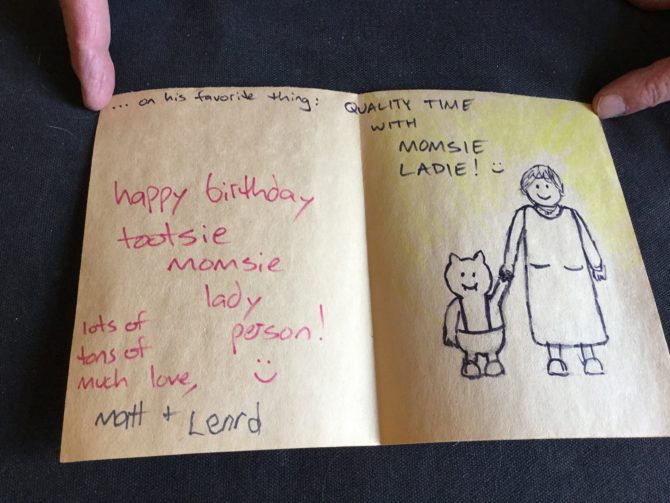 ... on his favorite thing:
happy birthday
tootsie
momsie
lady
person!
lots of
tons of
much love,
Matt + Lenrd
QUALITY TIME
WITH
MOMSIE
LADIE!